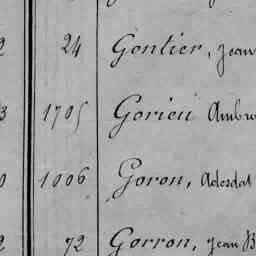 2 24 Gontier, Jean
3 1705 Gorieu Ambr
0 1006 Goron, Adesdat
2 72 Gorron, Jean B